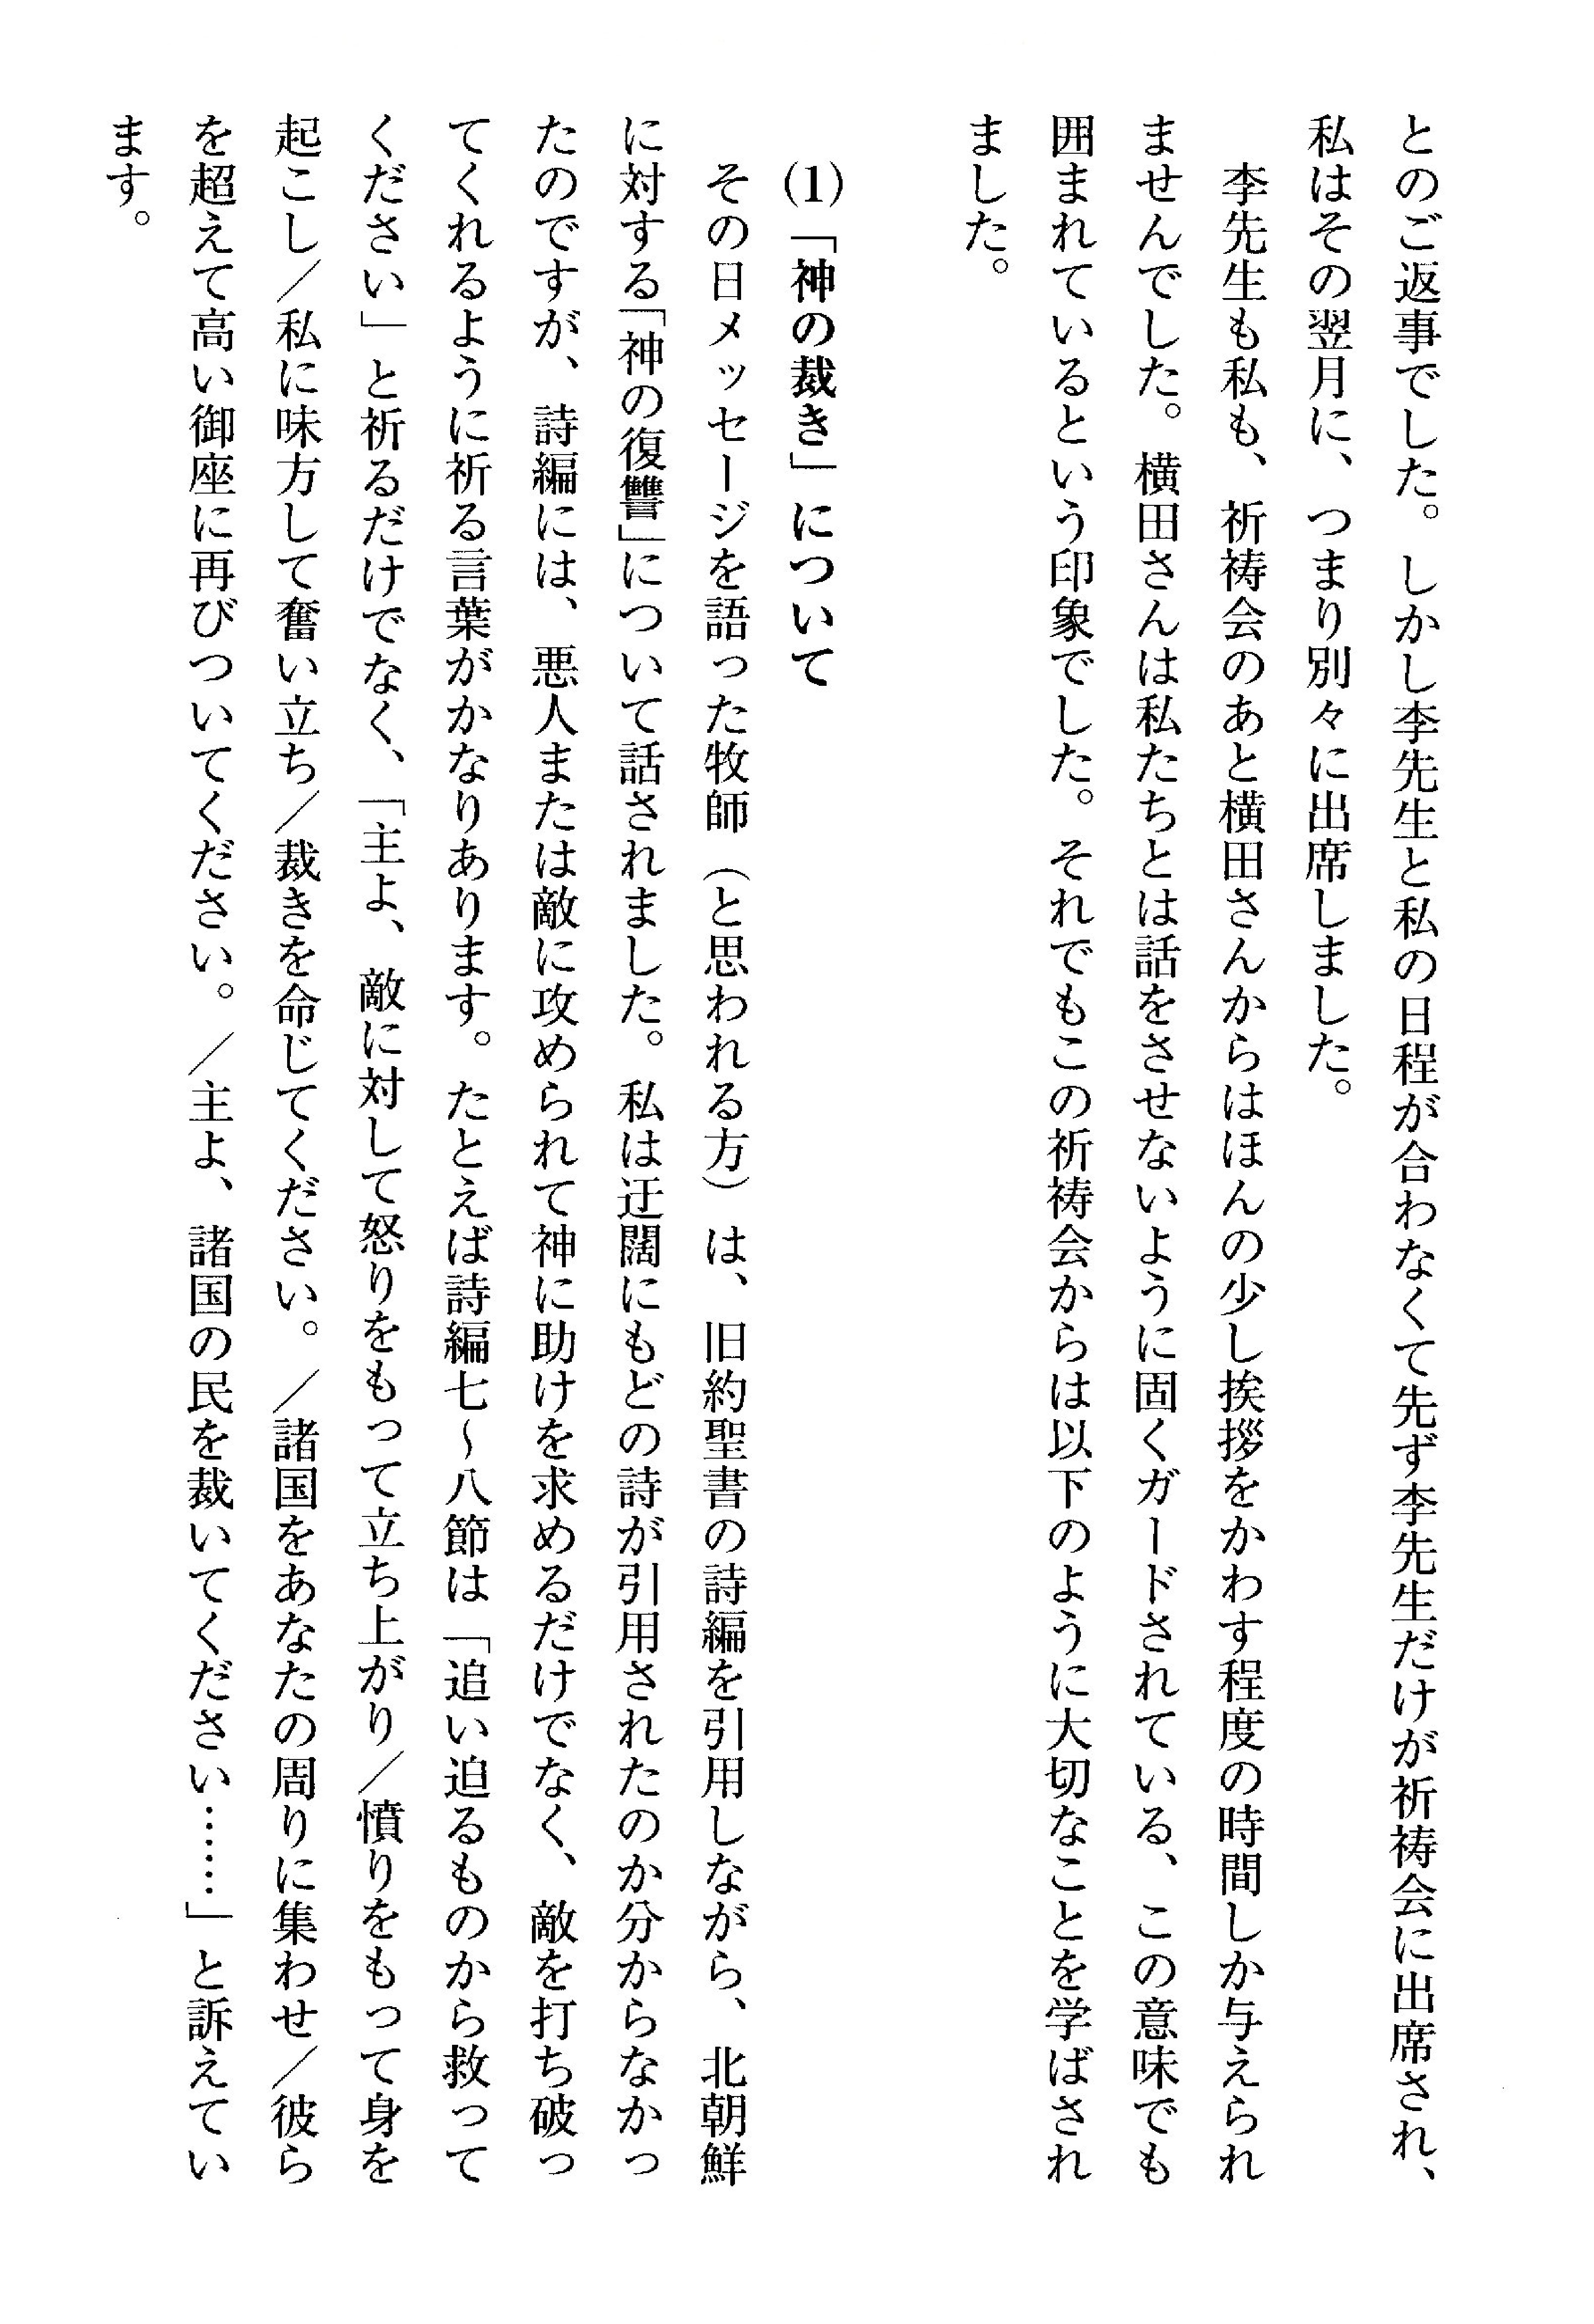 とのご返事でした。しかし李先生と私の日程が合わなくて先ず李先生だけが祈祷会に出席され、
私はその翌月に、つまり別々に出席しました。
李先生も私も、祈祷会のあと横田さんからはほんの少し挨拶をかわす程度の時間しか与えられ
ませんでした。横田さんは私たちとは話をさせないように固くガードされている、この意味でも
囲まれているという印象でした。それでもこの祈祷会からは以下のように大切なことを学ばされ
ました。
(1)「神の裁き」について
その日メッセージを語った牧師（と思われる方）は、旧約聖書の詩編を引用しながら、北朝鮮
に対する「神の復讐」について話されました。私は迂闊にもどの詩が引用されたのか分からなかっ
たのですが、詩編には、悪人または敵に攻められて神に助けを求めるだけでなく、敵を打ち破っ
てくれるように祈る言葉がかなりあります。たとえば詩編七〜八節は「追い迫るものから救って
ください」と祈るだけでなく、「主よ、敵に対して怒りをもって立ち上がり／憤りをもって身を
起こし／私に味方して奮い立ち／裁きを命じてください。／諸国をあなたの周りに集わせ／彼ら
を超えて高い御座に再びついてください。／主よ、諸国の民を裁いてください……」と訴えてい
ます。